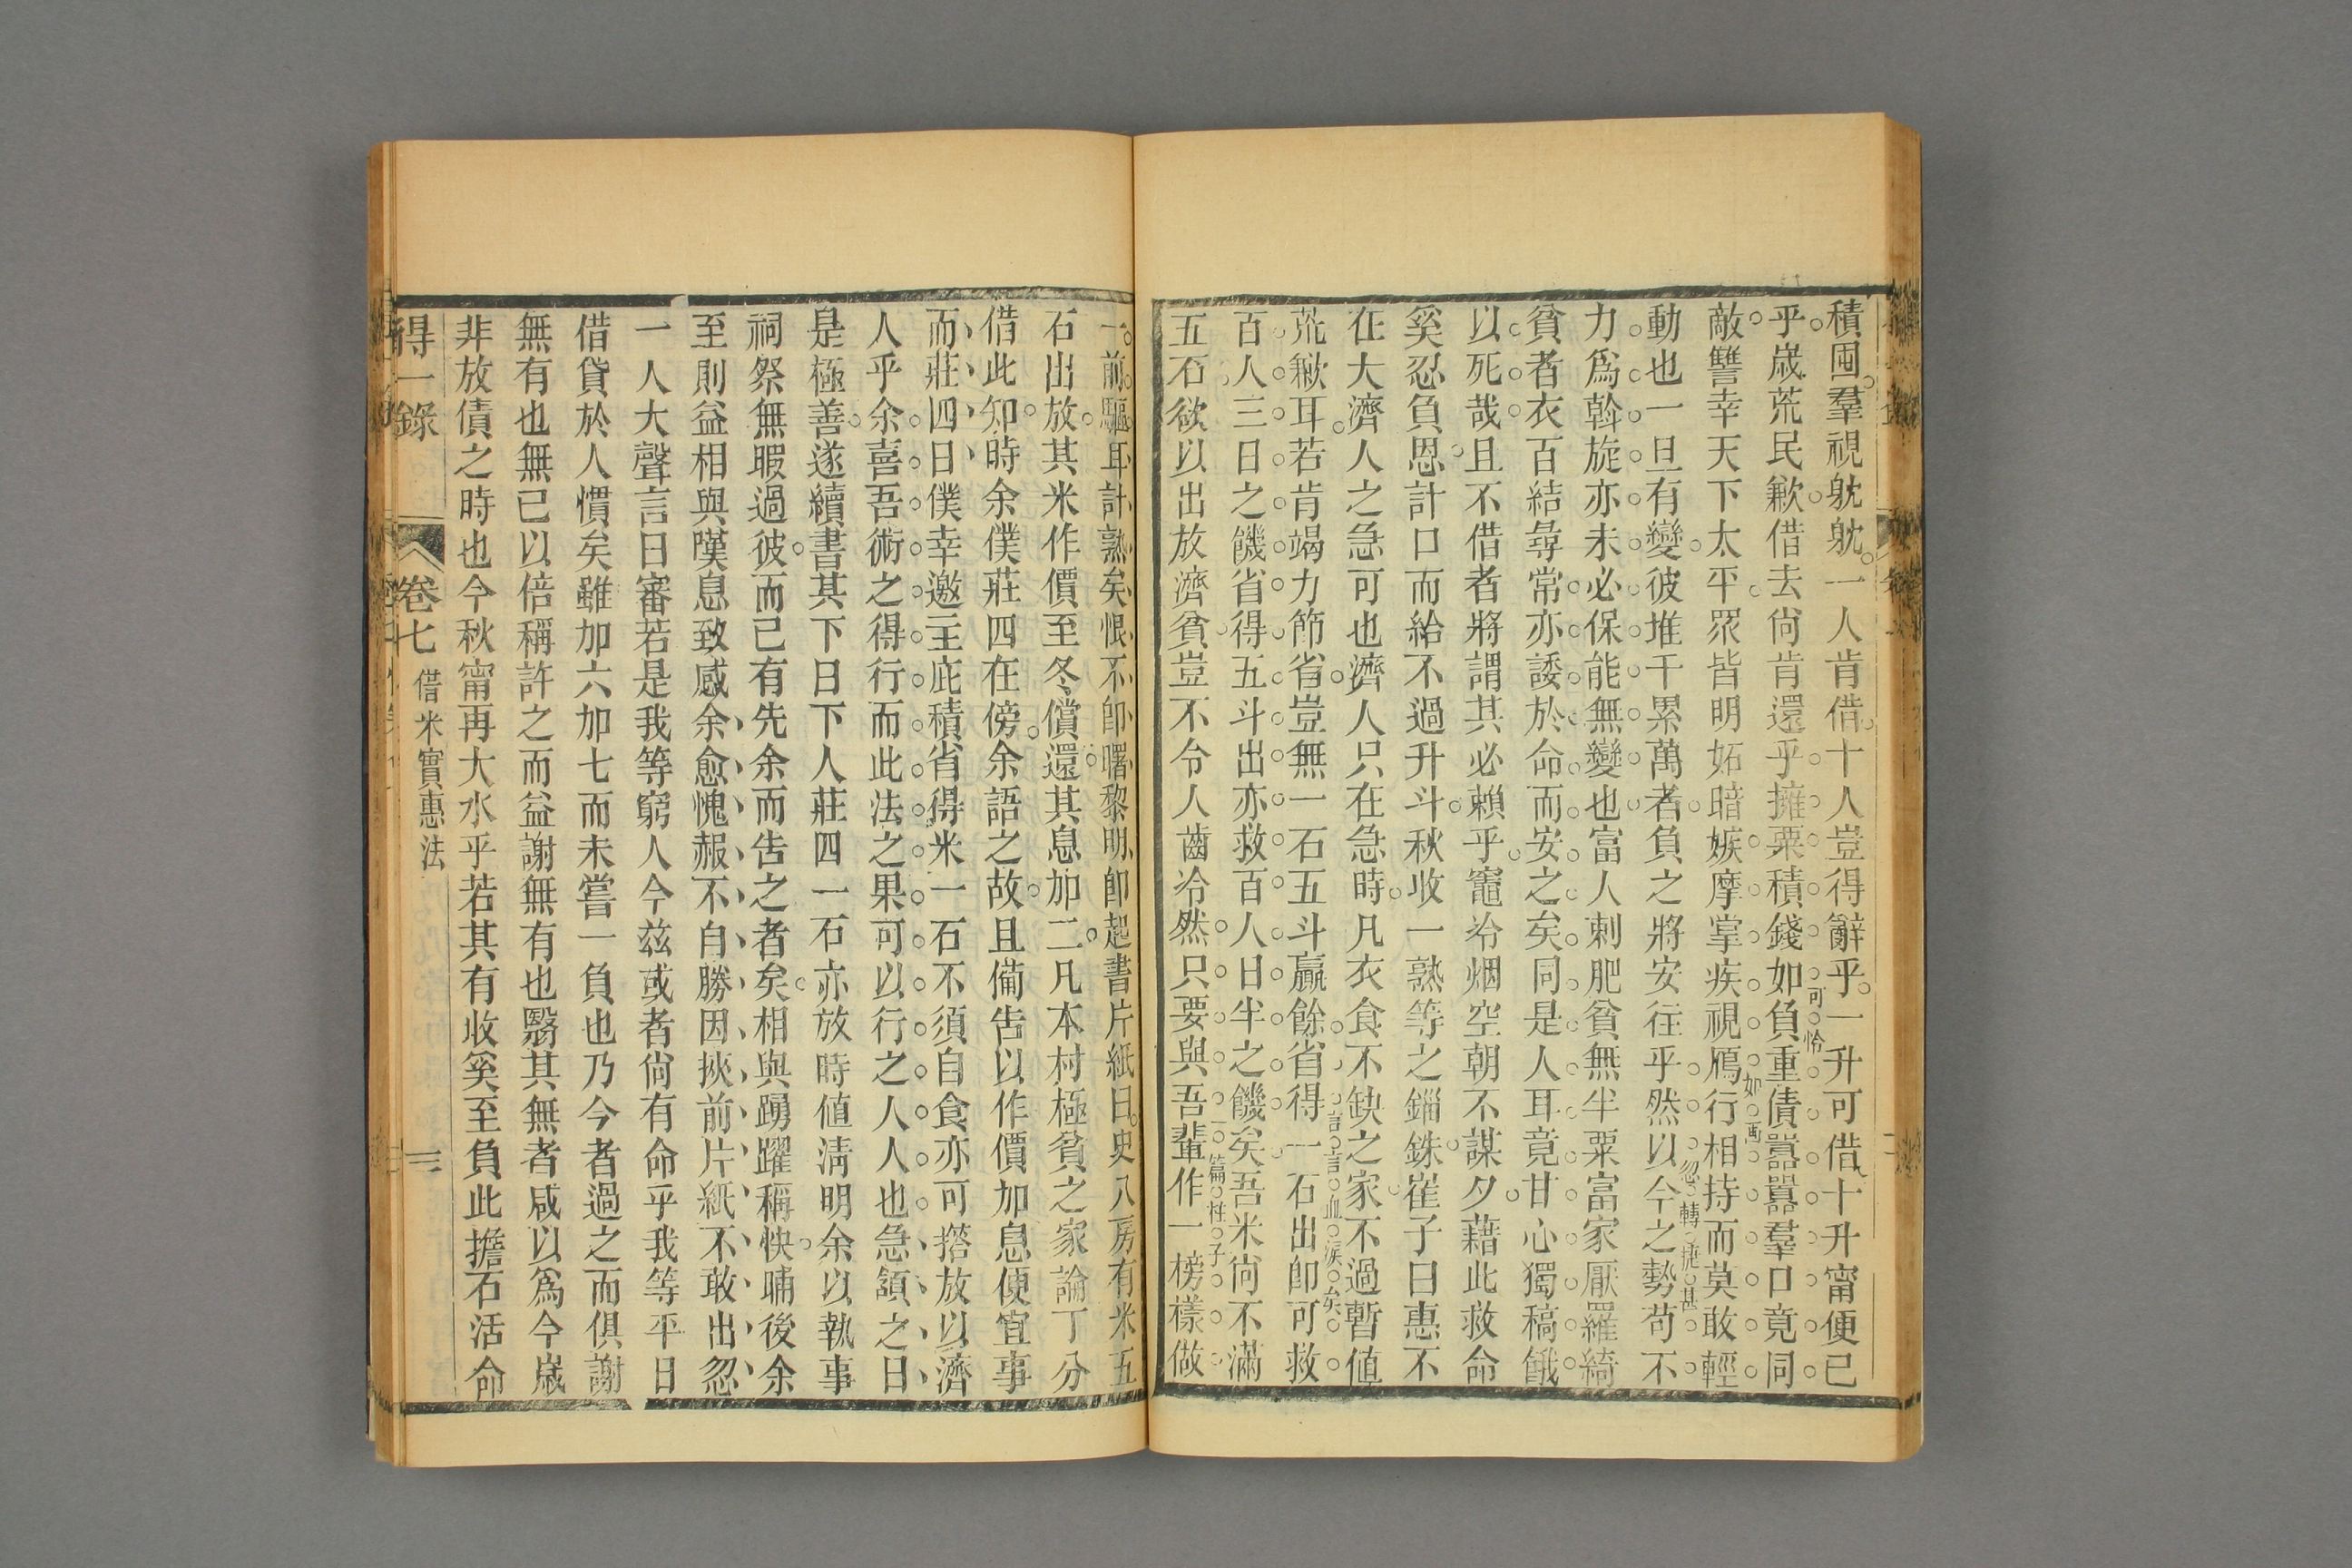 積囤羣視躭躭一人肯借十人豈得辭乎一升可借十升甯便已
乎歲荒民歉借去尙肯還乎擁粟積錢如負重債嚚嚚羣口竟同
可怜
敵讐幸天下太平眾皆明妬暗嫉摩掌疾視鴈行相持而莫敢輕
如画
動也一旦有變彼堆千累萬者負之將安往乎然以今之勢苟不
忽轉捷甚
力爲斡旋亦未必保能無變也富人刺肥貧無半粟富家厭羅綺
貧者衣百結尋常亦諉於命而安之矣同是人耳竟甘心獨稿餓
以死哉且不借者將謂其必賴乎竈冷烟空朝不謀夕藉此救命
奚忍負恩計口而給不過升斗秋收一熟等之錙銖崔子曰惠不
在大濟人之急可也濟人只在急時凡衣食不缺之家不過暫値
荒歉耳若肯竭力節省豈無一石五斗贏餘省得一石出卽可救
言言血淚矣
百人三日之饑省得五斗出亦救百人日半之饑矣吾米尙不滿
五石欲以出放濟貧豈不令人齒冷然只要與吾輩作一榜樣做
一篇性子
一前驅耳計熟矣恨不卽曙黎明卽起書片紙曰史八房有米五
石出放其米作價至冬償還其息加二凡本村極貧之家論丁分
借此知時余僕莊四在傍余語之故且備告以作價加息便宜事
而莊四曰僕幸邀主庇積省得米一石不須自食亦可搭放以濟
人乎余喜吾術之得行而此法之果可以行之人人也急頷之曰
是極善遂續書其下曰下人莊四一石亦放時値淸明余以執事
祠祭無暇過彼而已有先余而告之者矣相與踴躍稱快晡後余
至則益相與嘆息致感余愈愧赧不自勝因挾前片紙不敢出忽
一人大聲言曰審若是我等窮人今茲或者尙有命乎我等平日
借貸於人慣矣雖加六加七而未嘗一負也乃今者過之而俱謝
無有也無已以倍稱許之而益謝無有也翳其無者咸以爲今歲
非放債之時也今秋甯再大水乎若其有收奚至負此擔石活命
得一錄 卷七 借米實惠法 三